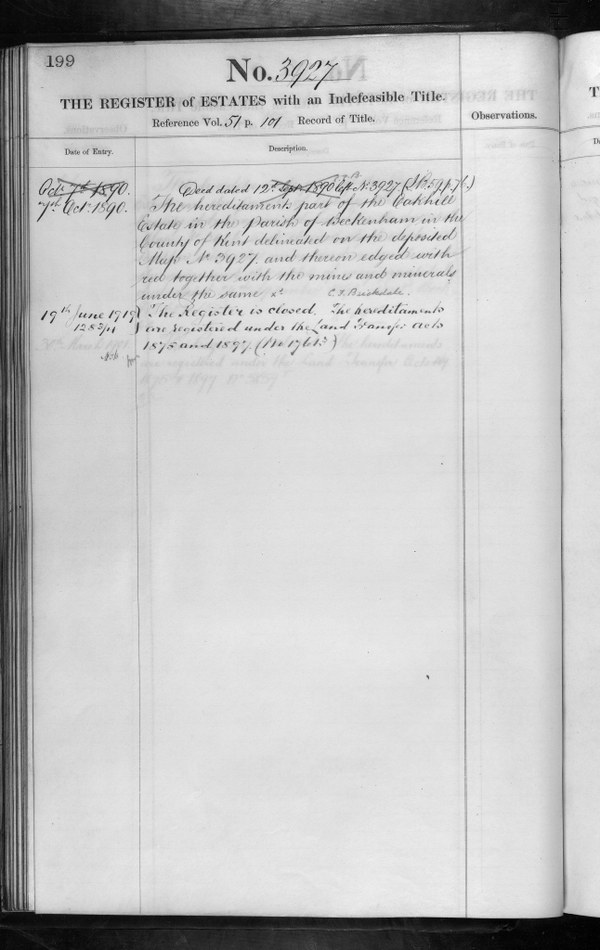 199
No. 3927
THE REGISTER of ESTATES with an Indefeasible Title.
Reference Vol. 51 p. 101 Record of Title.
Observations.
Date of Entry.
Description.
Oct. 7th 1890.
Deed dated 12th Sept. 1890 No. 3927
7th Oct. 1890.
The hereditaments part of the Oakhill
Estate in the Parish of Beckenham in the
County of Kent delineated on the deposited
Map No 3927 and thereon edged with
red together with the mines and minerals
under the same
19th June 1919
The Register is closed. The hereditaments
are registered under the Land Transfer Acts
1875 and 1897